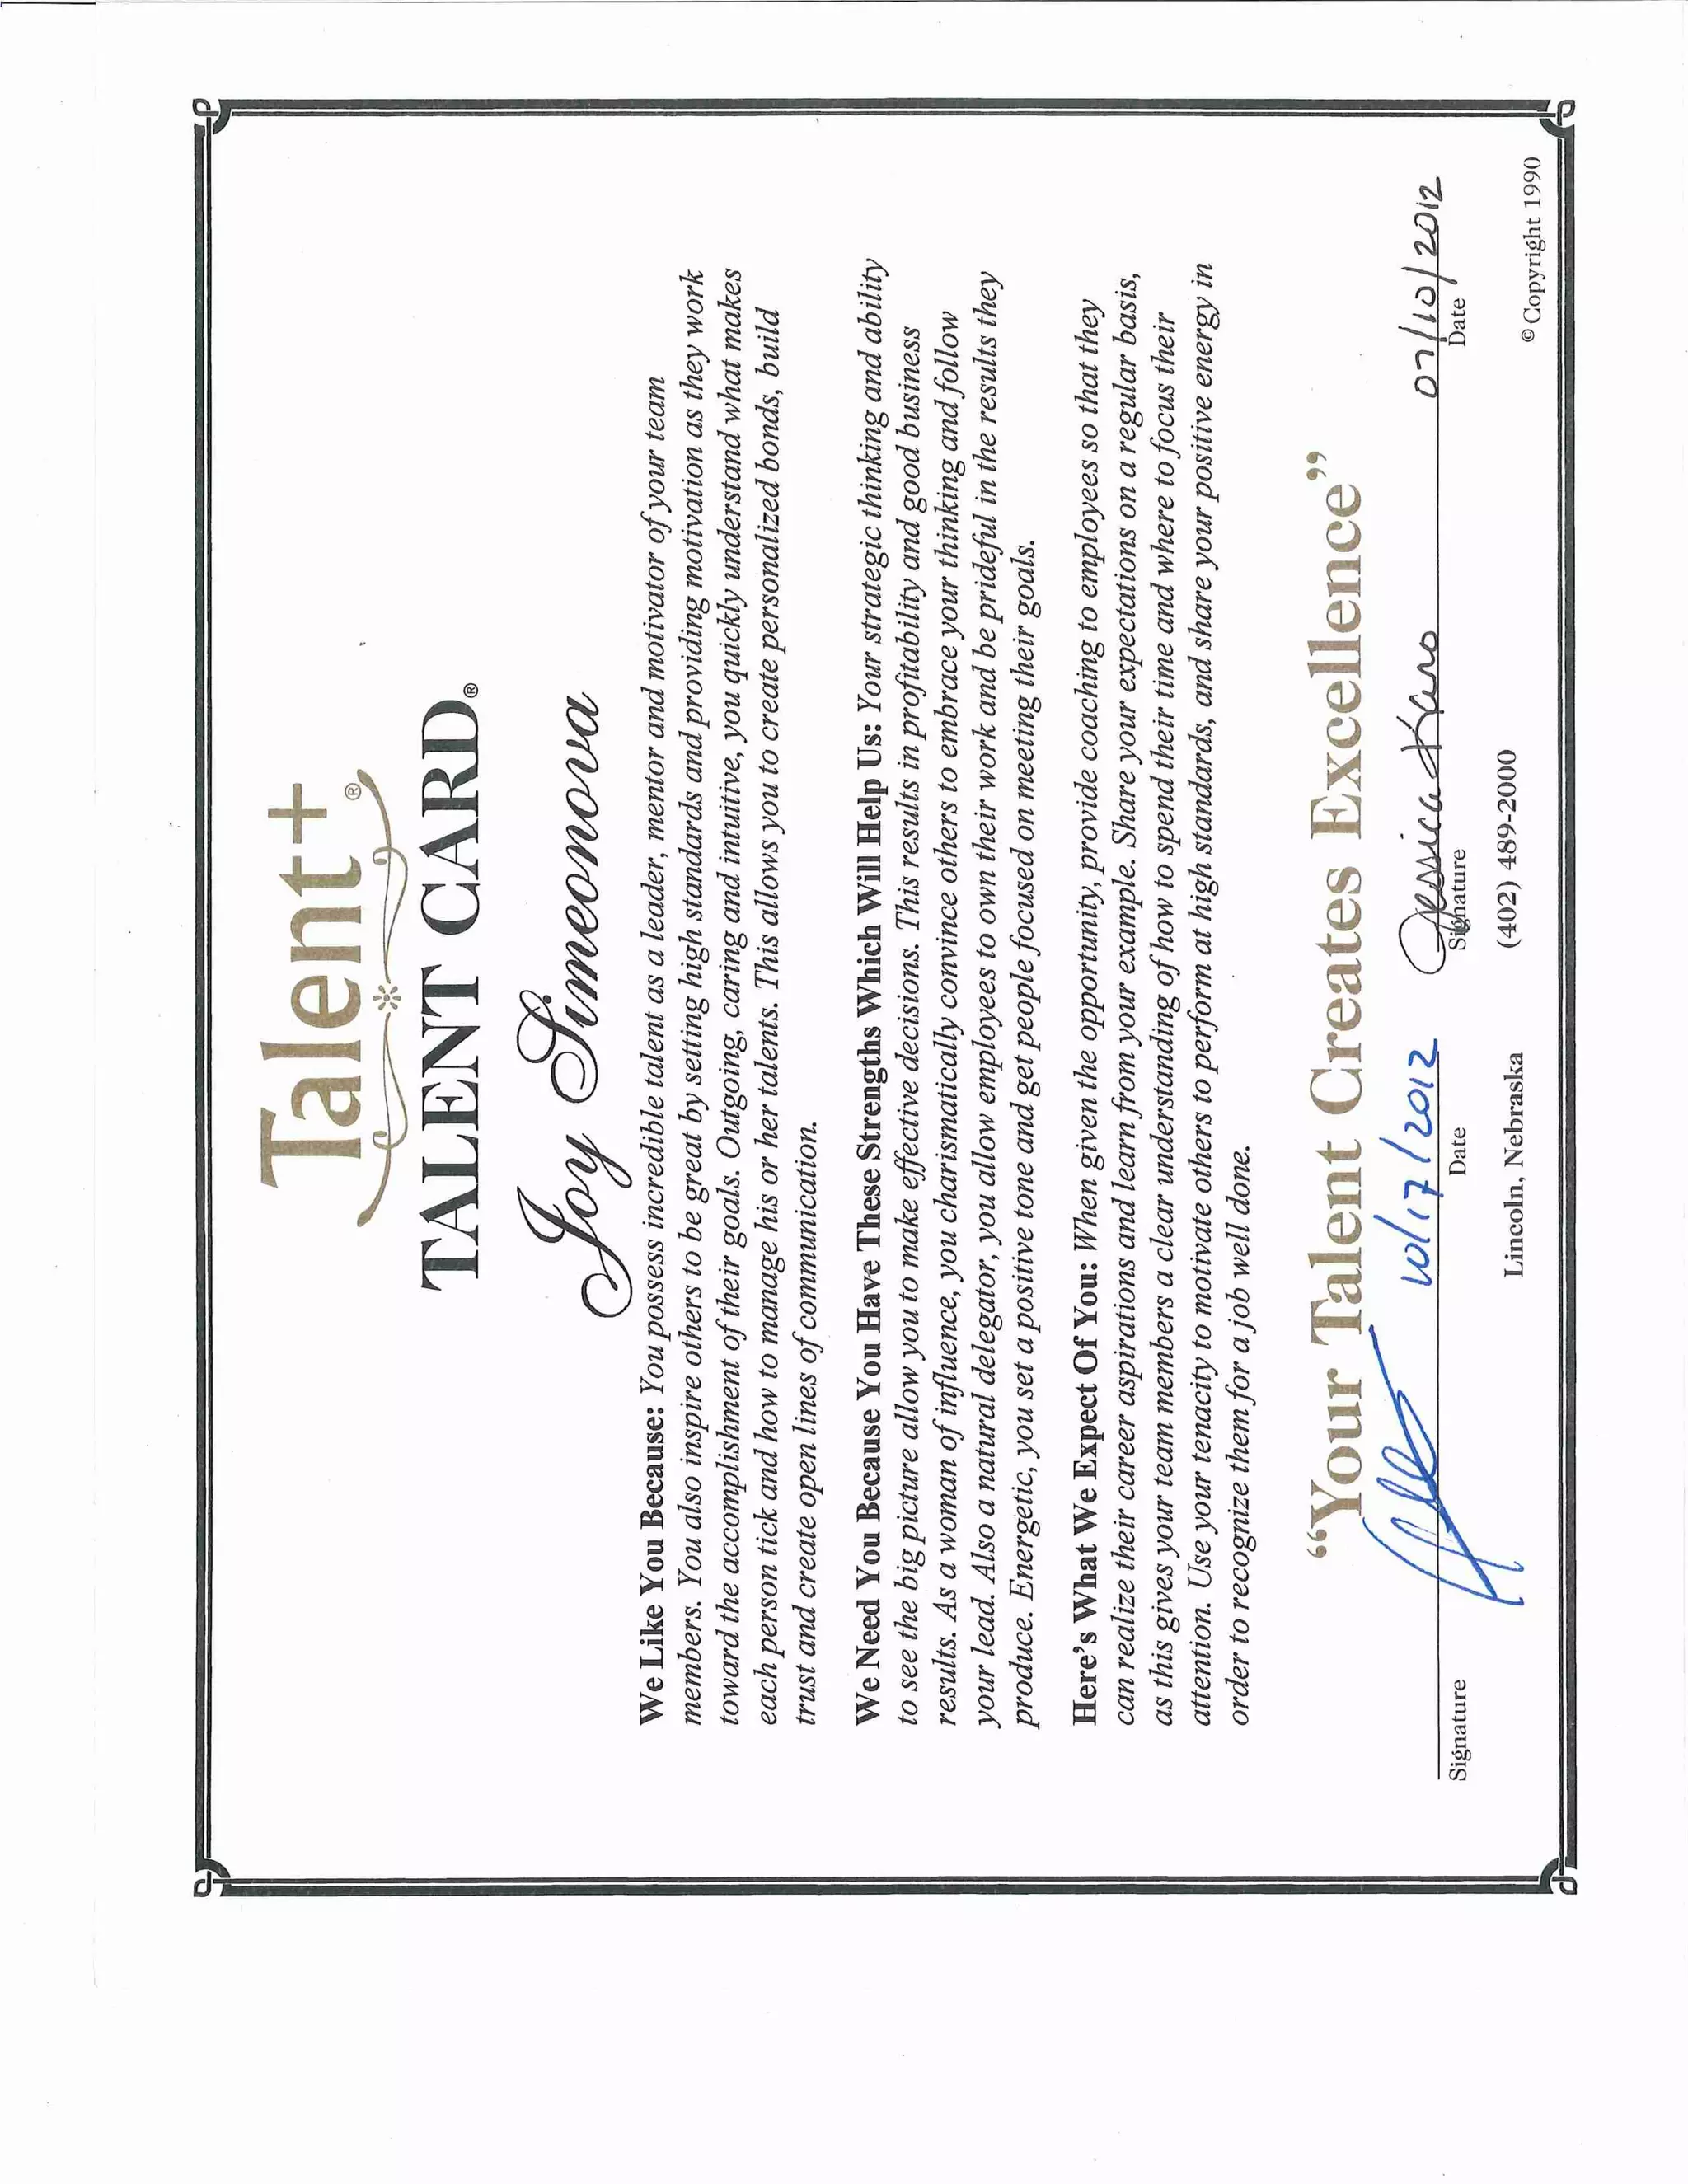 Talent+®
TALENT CARD®
Joy Simeonova
We Like You Because: You possess incredible talent as a leader, mentor and motivator of your team
members. You also inspire others to be great by setting high standards and providing motivation as they work
toward the accomplishment of their goals. Outgoing, caring and intuitive, you quickly understand what makes
each person tick and how to manage his or her talents. This allows you to create personalized bonds, build
trust and create open lines of communication.
We Need You Because You Have These Strengths Which Will Help Us: Your strategic thinking and ability
to see the big picture allow you to make effective decisions. This results in profitability and good business
results. As a woman of influence, you charismatically convince others to embrace your thinking and follow
your lead. Also a natural delegator, you allow employees to own their work and be prideful in the results they
produce. Energetic, you set a positive tone and get people focused on meeting their goals.
Here's What We Expect Of You: When given the opportunity, provide coaching to employees so that they
can realize their career aspirations and learn from your example. Share your expectations on a regular basis,
as this gives your team members a clear understanding of how to spend their time and where to focus their
attention. Use your tenacity to motivate others to perform at high standards, and share your positive energy in
order to recognize them for a job well done.
“Your Talent Creates Excellence”
10/17/2012 Jessica 07/10/2012
Signature Date Signature Date
Lincoln, Nebraska (402) 489-2000
© Copyright 1990